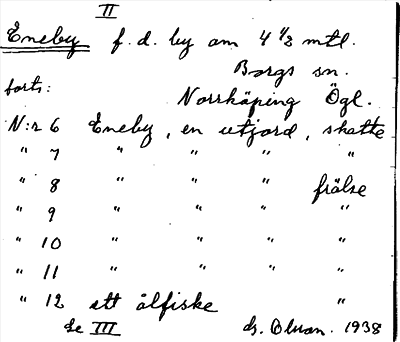 II
Eneby f. d. by om 4 1/2 mtl.
Borgs sn.
forts: Norrköping Ögl.
N:r 6 Eneby, en utjord, skatte
" 7 " " " "
" 8 " " " frälse
" 9 " " " "
" 10 " " " "
" 11 " " " "
" 12 ett ålfiske "
Se III
1938